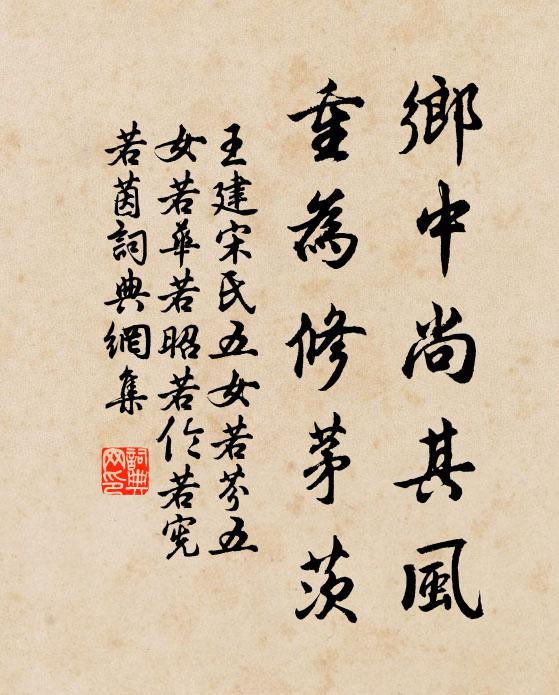 鄉中尚其風
重為修茅茨
王建宋氏五女若芬五
女若華若昭若倫若憲
若茵詞典網集
詞典網印